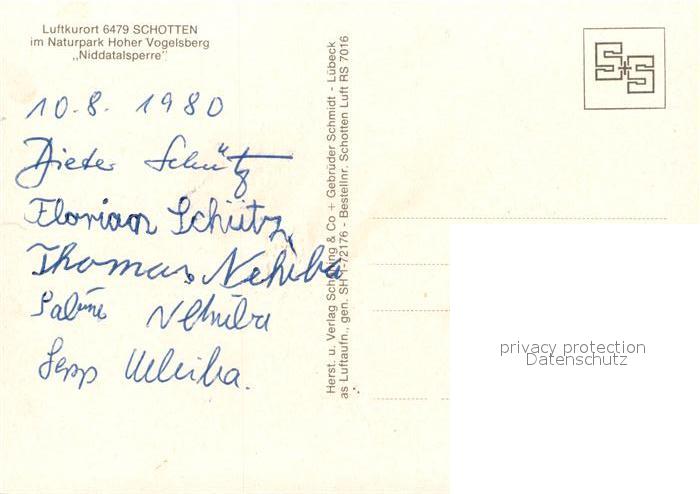 Luftkurort 6479 SCHOTTEN
im Naturpark Hoher Vogelsberg
„Niddatalsperre”
10.8. 1980
Dieter Schütz
Florian Schütz,
Thomas Nehiba
Sabine Nehiba
Sepp Nehiba.
Herst. u. Verlag Schöning & Co + Gebrüder Schmidt - Lübeck
as Luftaufn., gen. SH 1-72176 - Bestellnr. Schotten Luft RS 7016
S+S
privacy protection
Datenschutz